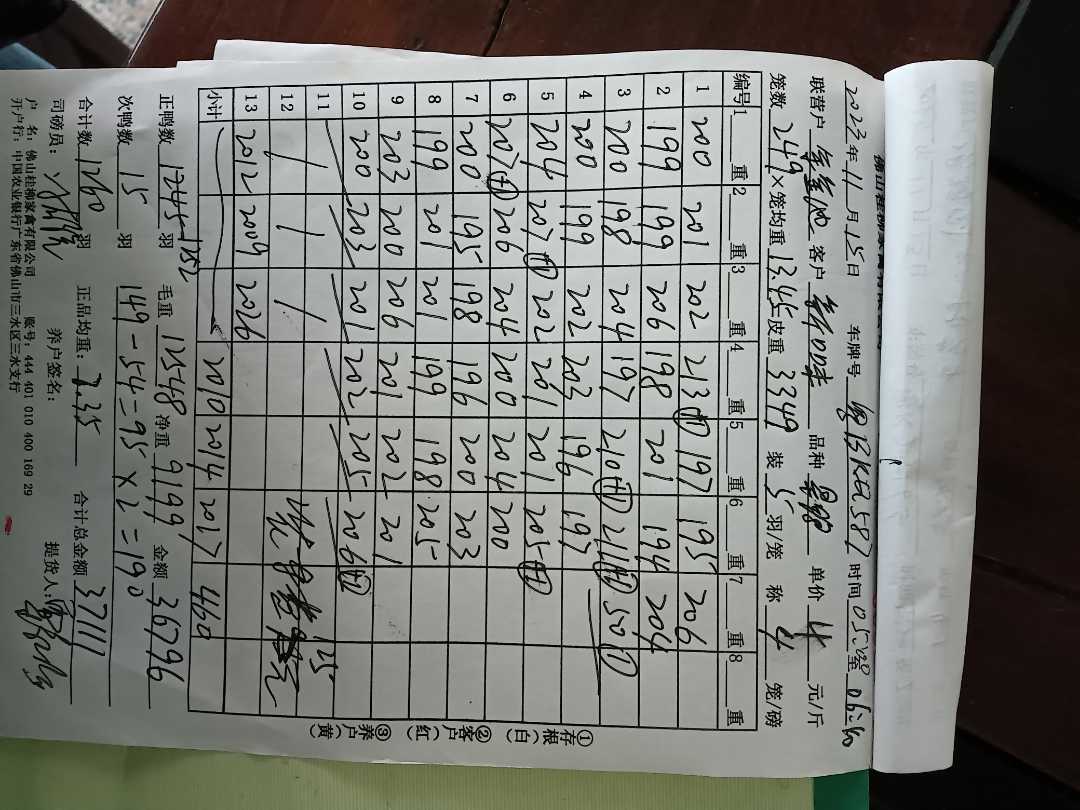 2023年11月15日 车牌号 粤BKQ587 时间 05:00至06:50
联营户 客户 品种 单价 4 元/斤
笼数 249 ×笼均重 13.45 皮重 3349 装 5 羽/笼 称 4 笼/磅
编号 1重 2重 3重 4重 5重 6重 7重 8重
1 200 201 202 213(+1) 197 195 206
2 199 199 206 198 201 194 204
3 200 198 204 197 210(+1) 211(+1) 50(1)
4 200 199 202 203 196 197
5 204 207(+1) 202 201 201 205(+1)
6 207(+1) 206 204 200 204 200
7 200 195 198 196 200 203
8 199 201 201 199 198 205
9 203 200 206 201 202 201
10 200 203 201 202 205 206(+1)
11 125
12
13 2012 2009 2026
小计 2010 2014 2017 460
①存根(白) ②客户(红) ③养户(黄)
正鸭数 1245-152 毛重 12548 净重 9199 金额 36796
次鸭数 15 羽 149-54=95×2=190
合计数 1260 羽 正品均重: 7.35 合计总金额 37111
司磅员: 养户签名: 提货人:
户 名: 佛山桂柳家禽有限公司 账号: 444 401 010 400 169 29
开户行: 中国农业银行广东省佛山市三水区三水支行